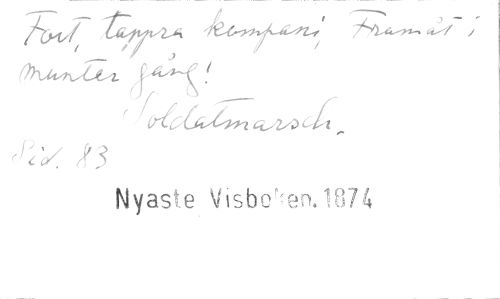 Fort, tappra kompani, Framåt i
munter gång!
Soldatmarsch.
Sid. 83
Nyaste Visboken. 1874